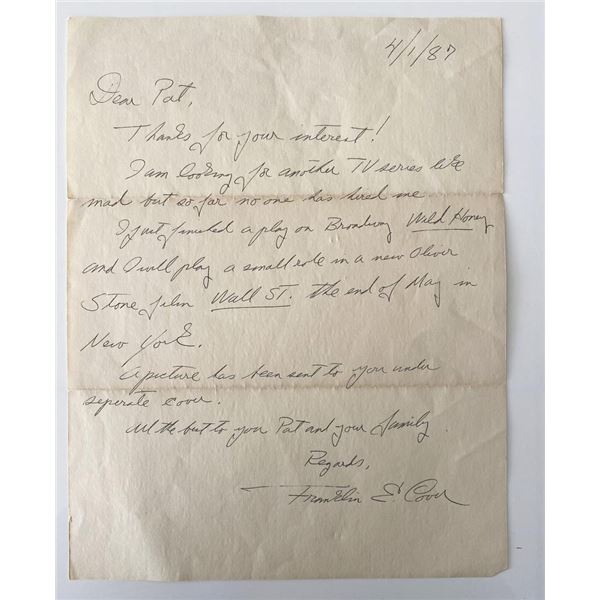 4/1/87
Dear Pat,
Thanks for your interest!
I am looking for another TV series like
mad but so far no one has hired me.
I just finished a play on Broadway Wild Honey
and I will play a small role in a new Oliver
Stone film Wall ST. the end of May in
New York.
A picture has been sent to you under
seperate cover.
All the best to you Pat and your family.
Regards,
Franklin E. Cover